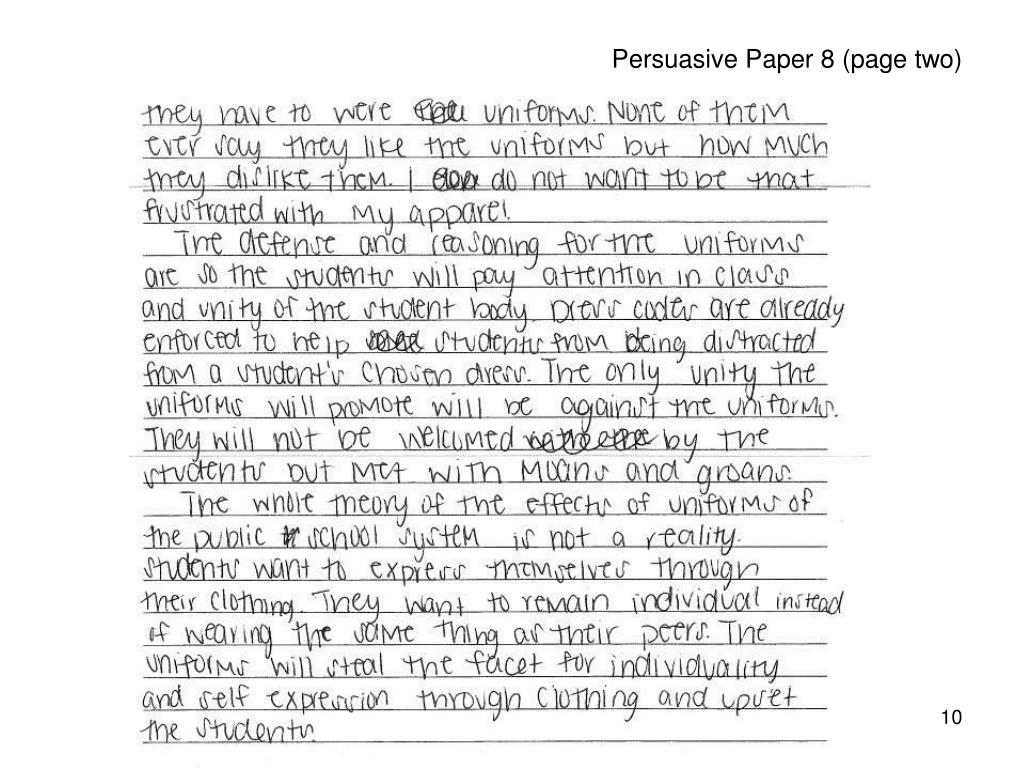 Persuasive Paper 8 (page two)
they have to were uniforms. None of them
ever say they like the uniforms but how much
they dislike them. I do not want to be that
frustrated with my apparel.
The defense and reasoning for the uniforms
are so the students will pay attention in class
and unity of the student body. Dress codes are already
enforced to help students from being distracted
from a student's chosen dress. The only unity the
uniforms will promote will be against the uniforms.
They will not be welcumed by the
students but met with moans and groans.
The whole theory of the effects of uniforms of
the public school system is not a reality.
Students want to express themselves through
their clothing. They want to remain individual instead
of wearing the same thing as their peers. The
uniforms will steal the facet for individuality
and self expression through clothing and upset
the students.
10